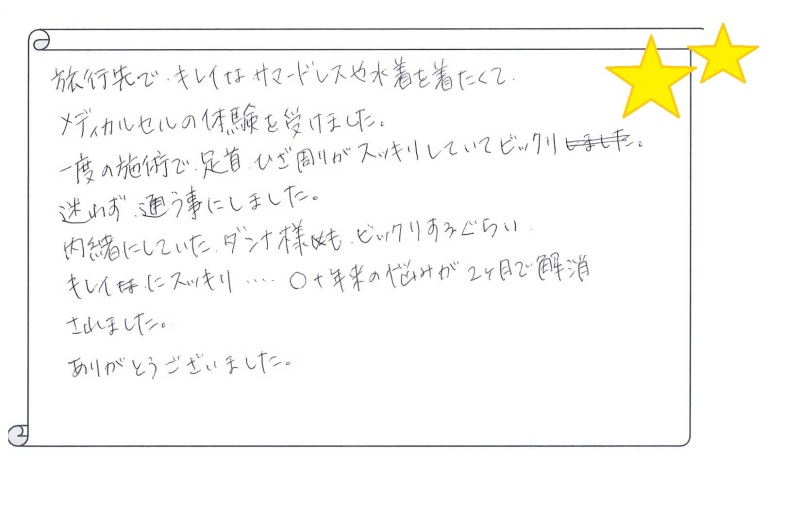 旅行先で、キレイなサマードレスや水着を着たくて、
メディカルセルの体験を受けました。
一度の施術で、足首、ひざ周りがスッキリしていてビックリしました。
迷わず、通う事にしました。
内緒にしていた、ダンナ様も、ビックリするぐらい、
キレイにスッキリ‥‥〇十年来の悩みが2ヶ月で解消
されました。
ありがとうございました。